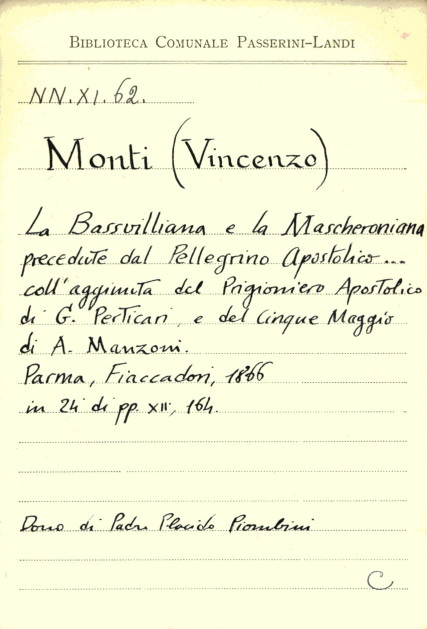 BIBLIOTECA COMUNALE PASSERINI-LANDI
NN.XI.62.
Monti (Vincenzo)
La Bassvilliana e la Mascheroniana
precedute dal Pellegrino Apostolico...
coll'aggiunta del Prigioniero Apostolico
di G. Perticari e del Cinque Maggio
di A. Manzoni.
Parma, Fiaccadori, 1866
in 24 di pp. XII, 164.
Dono di Padre Placido Piombini
C